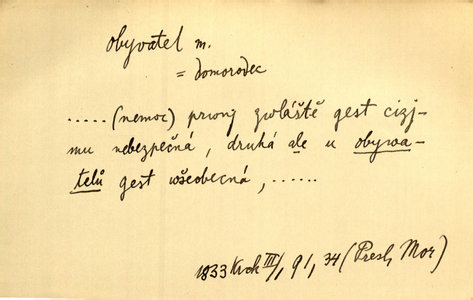 obyvatel m.
= domorodec
..... (nemoc) prvnj zwláště gest cizj-
mu nebezpečná, druhá ale u obywa-
telů gest wšeobecná, ......
1833 Krok III/1, 91, 34 (Presl, Mor)